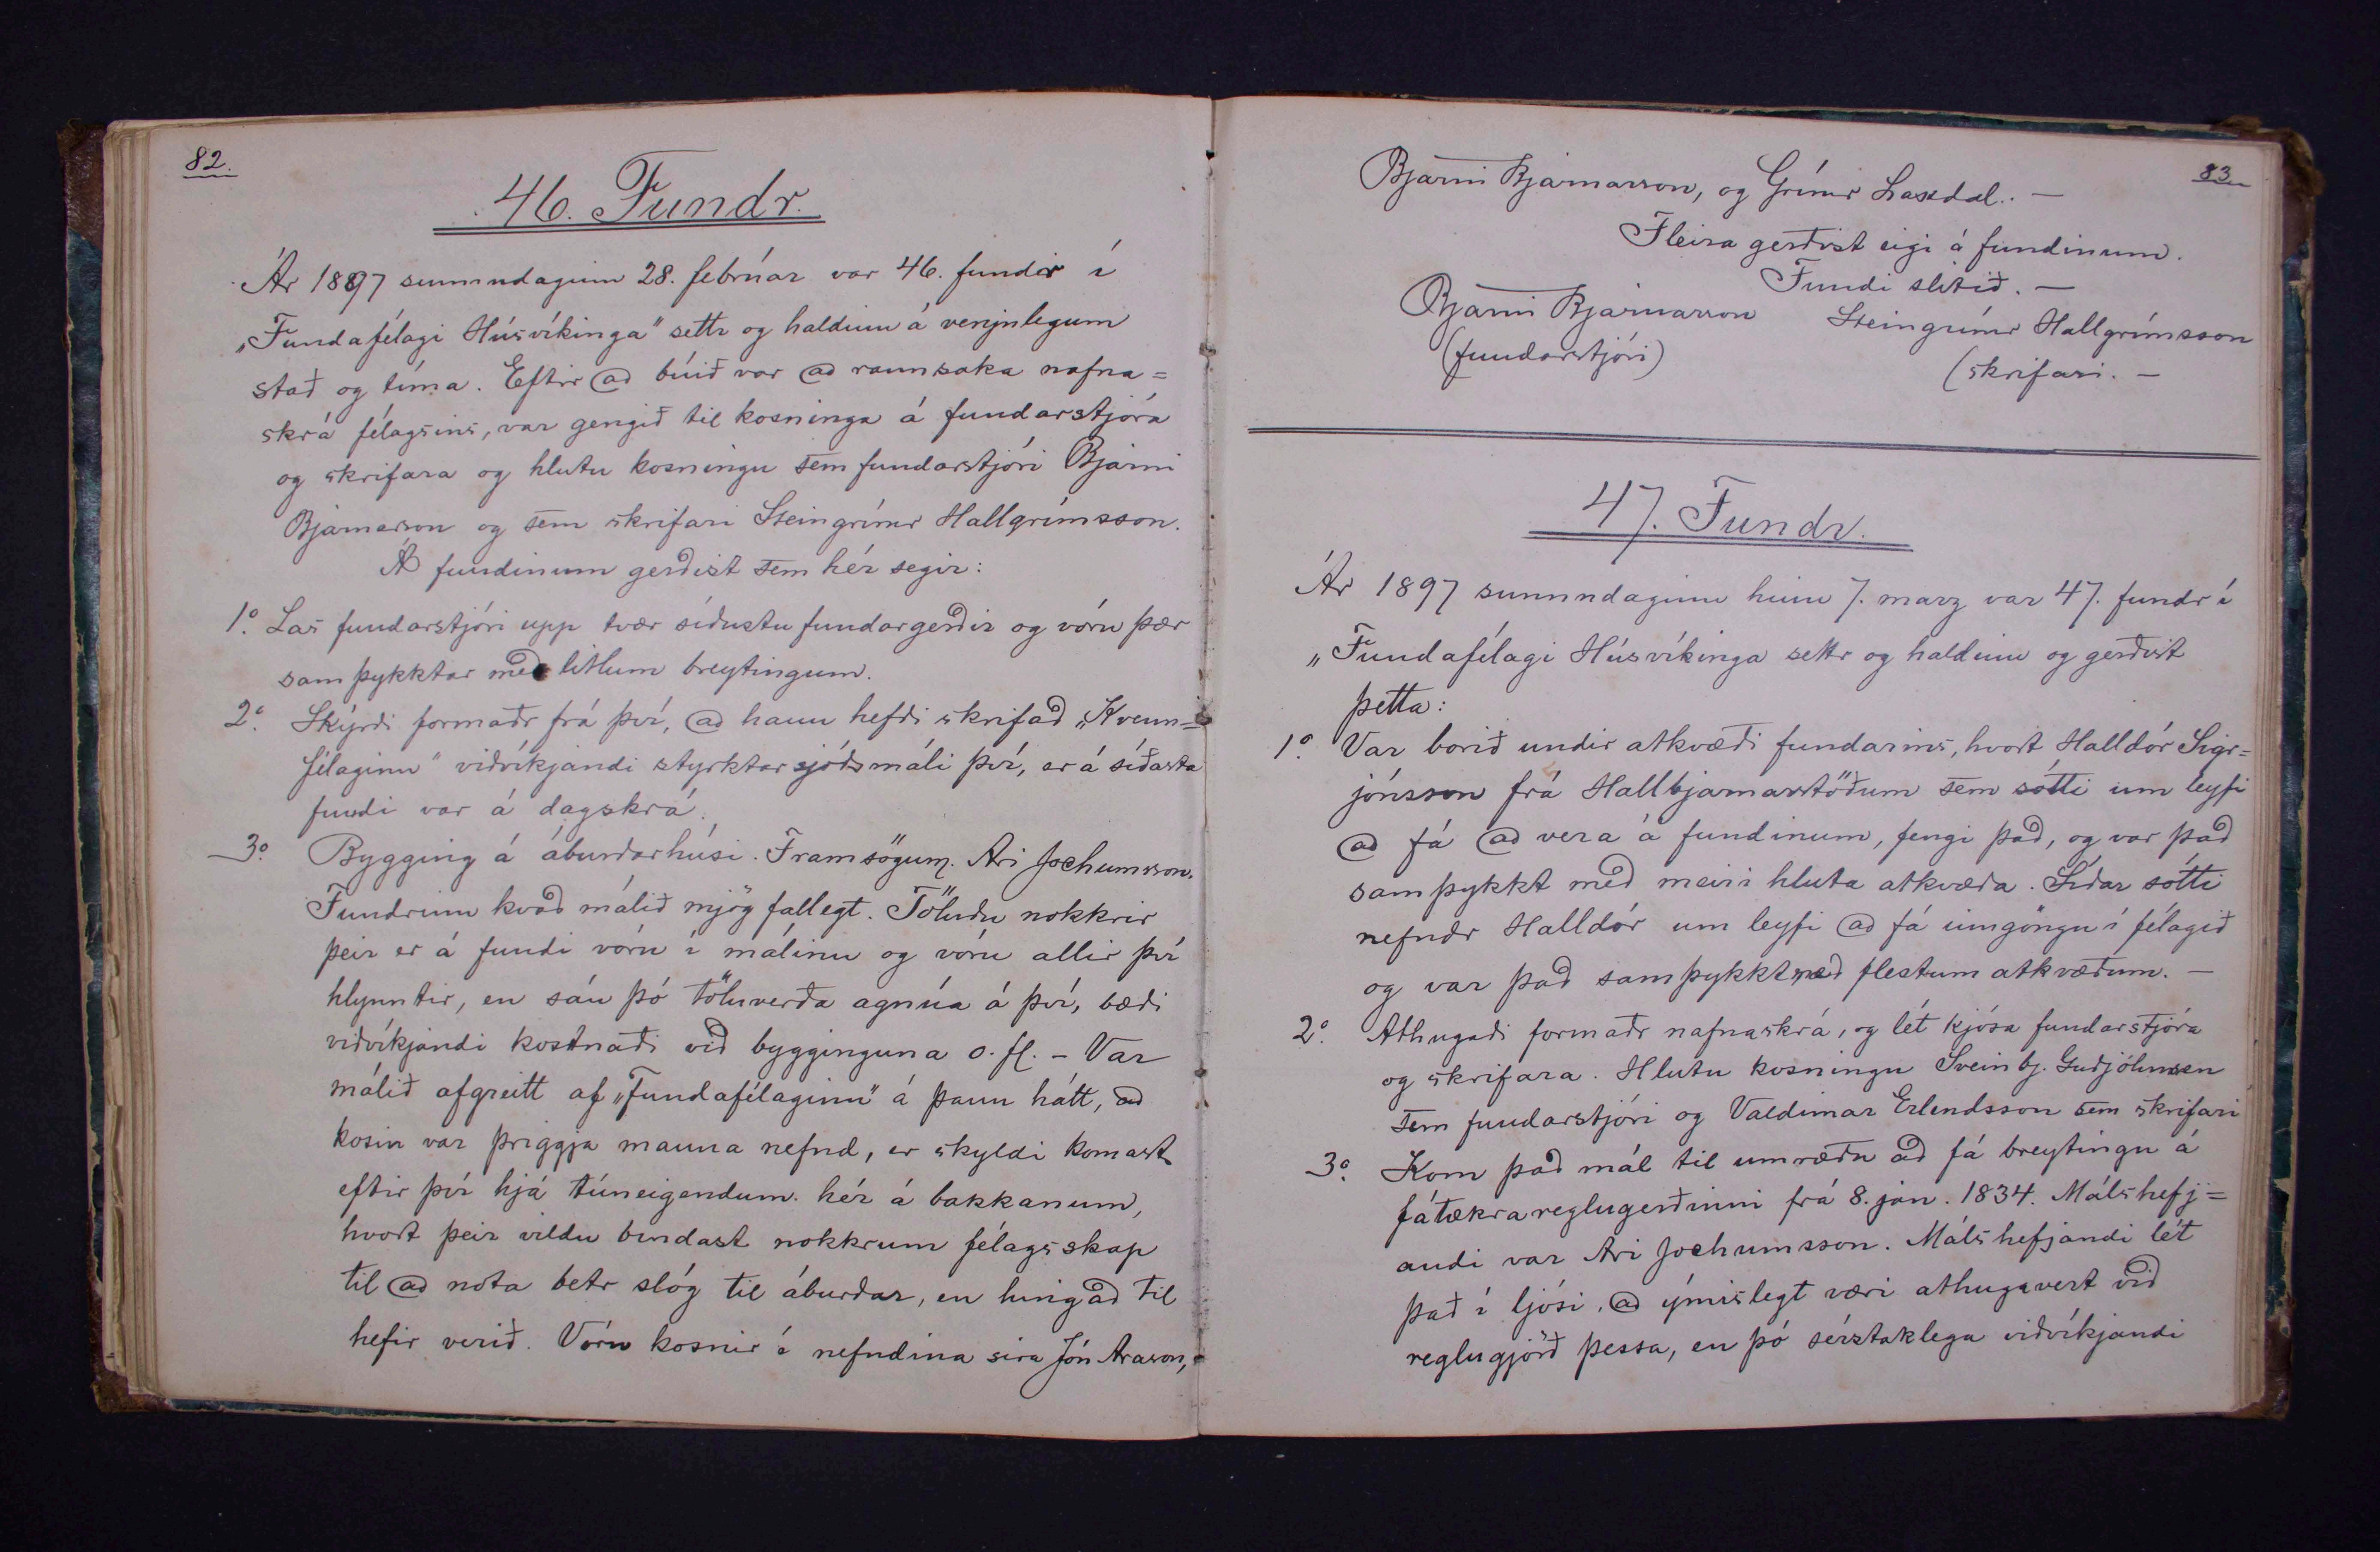 82.
46. Fundr.
Ár 1897 sunnudaginn 28. febrúar var 46. fundir í
„Fundafélagi Húsvíkinga" settr og haldinn á venjulegum
stað og tíma. Eftir að búið var að rannsaka nafna=
skrá félagsins, var gengið til kosninga á fundarstjóra
og skrifara og hlutu kosningu sem fundarstjóri Bjarni
Bjarnarson og sem skrifari Steingrímr Hallgrímsson.
Á fundinum gerðist sem hér segir:
1.o Las fundarstjóri upp tvær síðustu fundargerðir og vóru þær
samþykktar með litlum breytingum.
2.o Skýrði formaðr frá því, að hann hefði skrifað „Kvenn=
félaginu" viðvíkjandi styrktarsjóðsmáli því, er á síðasta
fundi var á dagskrá.
3.o Bygging á áburðarhúsi. Framsögum. Ari Jochumsson.
Fundrinn kvað málið mjög fallegt. Töluðu nokkrir
þeir er á fundi vóru í málinu og vóru allir því
hlynntir, en sáu þó töluverða agnúa á því, bæði
viðvíkjandi kostnaði við bygginguna o. fl. - Var
málið afgreitt af „Fundafélaginu" á þann hátt, að
kosin var þriggja manna nefnd, er skyldi komast
eftir því hjá túneigendum hér á bakkanum,
hvort þeir vildu bindast nokkrum félagsskap
til að nota betr slóg til áburðar, en hingað til
hefir verið. Vóru kosnir í nefndina síra Jón Arason,
83
Bjarni Bjarnarson, og Grímr Laxdal. -
Fleira gerðist eigi á fundinum.
Fundi slitið. -
Bjarni Bjarnarson Steingrímr Hallgrímsson
(fundarstjóri) (skrifari. -
47. Fundr.
Ár 1897 sunnudaginn hinn 7. marz var 47. fundr í
„Fundafélagi Húsvíkinga settr og haldinn og gerðist
þetta:
1.o Var borið undir atkvæði fundarins, hvort Halldór Sigr=
jónsson frá Hallbjarnarstöðum sem sótti um leyfi
að fá að vera á fundinum, fengi það, og var það
samþykkt með meiri hluta atkvæða. Síðar sótti
nefndr Halldór um leyfi að fá inngöngu í félagið
og var það samþykkt með flestum atkvæðum. -
2.o Athugaði formaðr nafnaskrá, og lét kjósa fundarstjóra
og skrifara. Hlutu kosningu Sveinbj. Guðjóhnsen
sem fundarstjóri og Valdimar Erlendsson sem skrifari
3.o Kom það mál til umræðu að fá breytingu á
fátækrareglugerðinni frá 8. jan. 1834. Málshefj=
andi var Ari Jochumsson. Málshefjandi lét
það í ljósi, að ýmislegt væri athugavert við
reglugjörð þessa, en þó sérstaklega viðvíkjandi